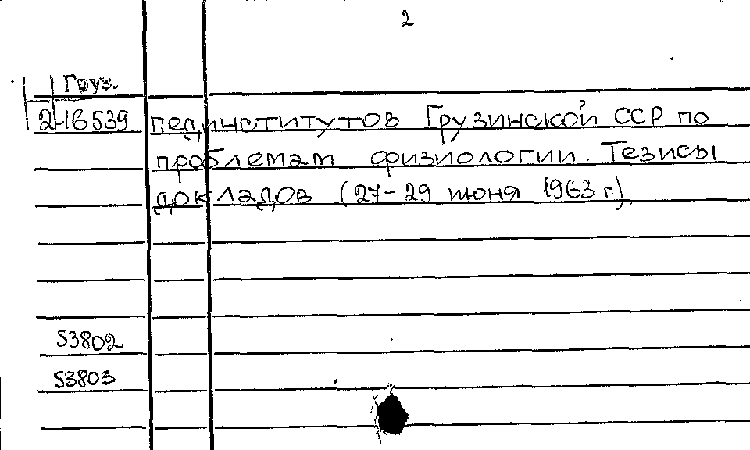 2
Груз.
2-18539 пединститутов Грузинской ССР по
проблемам физиологии. Тезисы
докладов (27-29 июня 1963 г.)
53802
53803